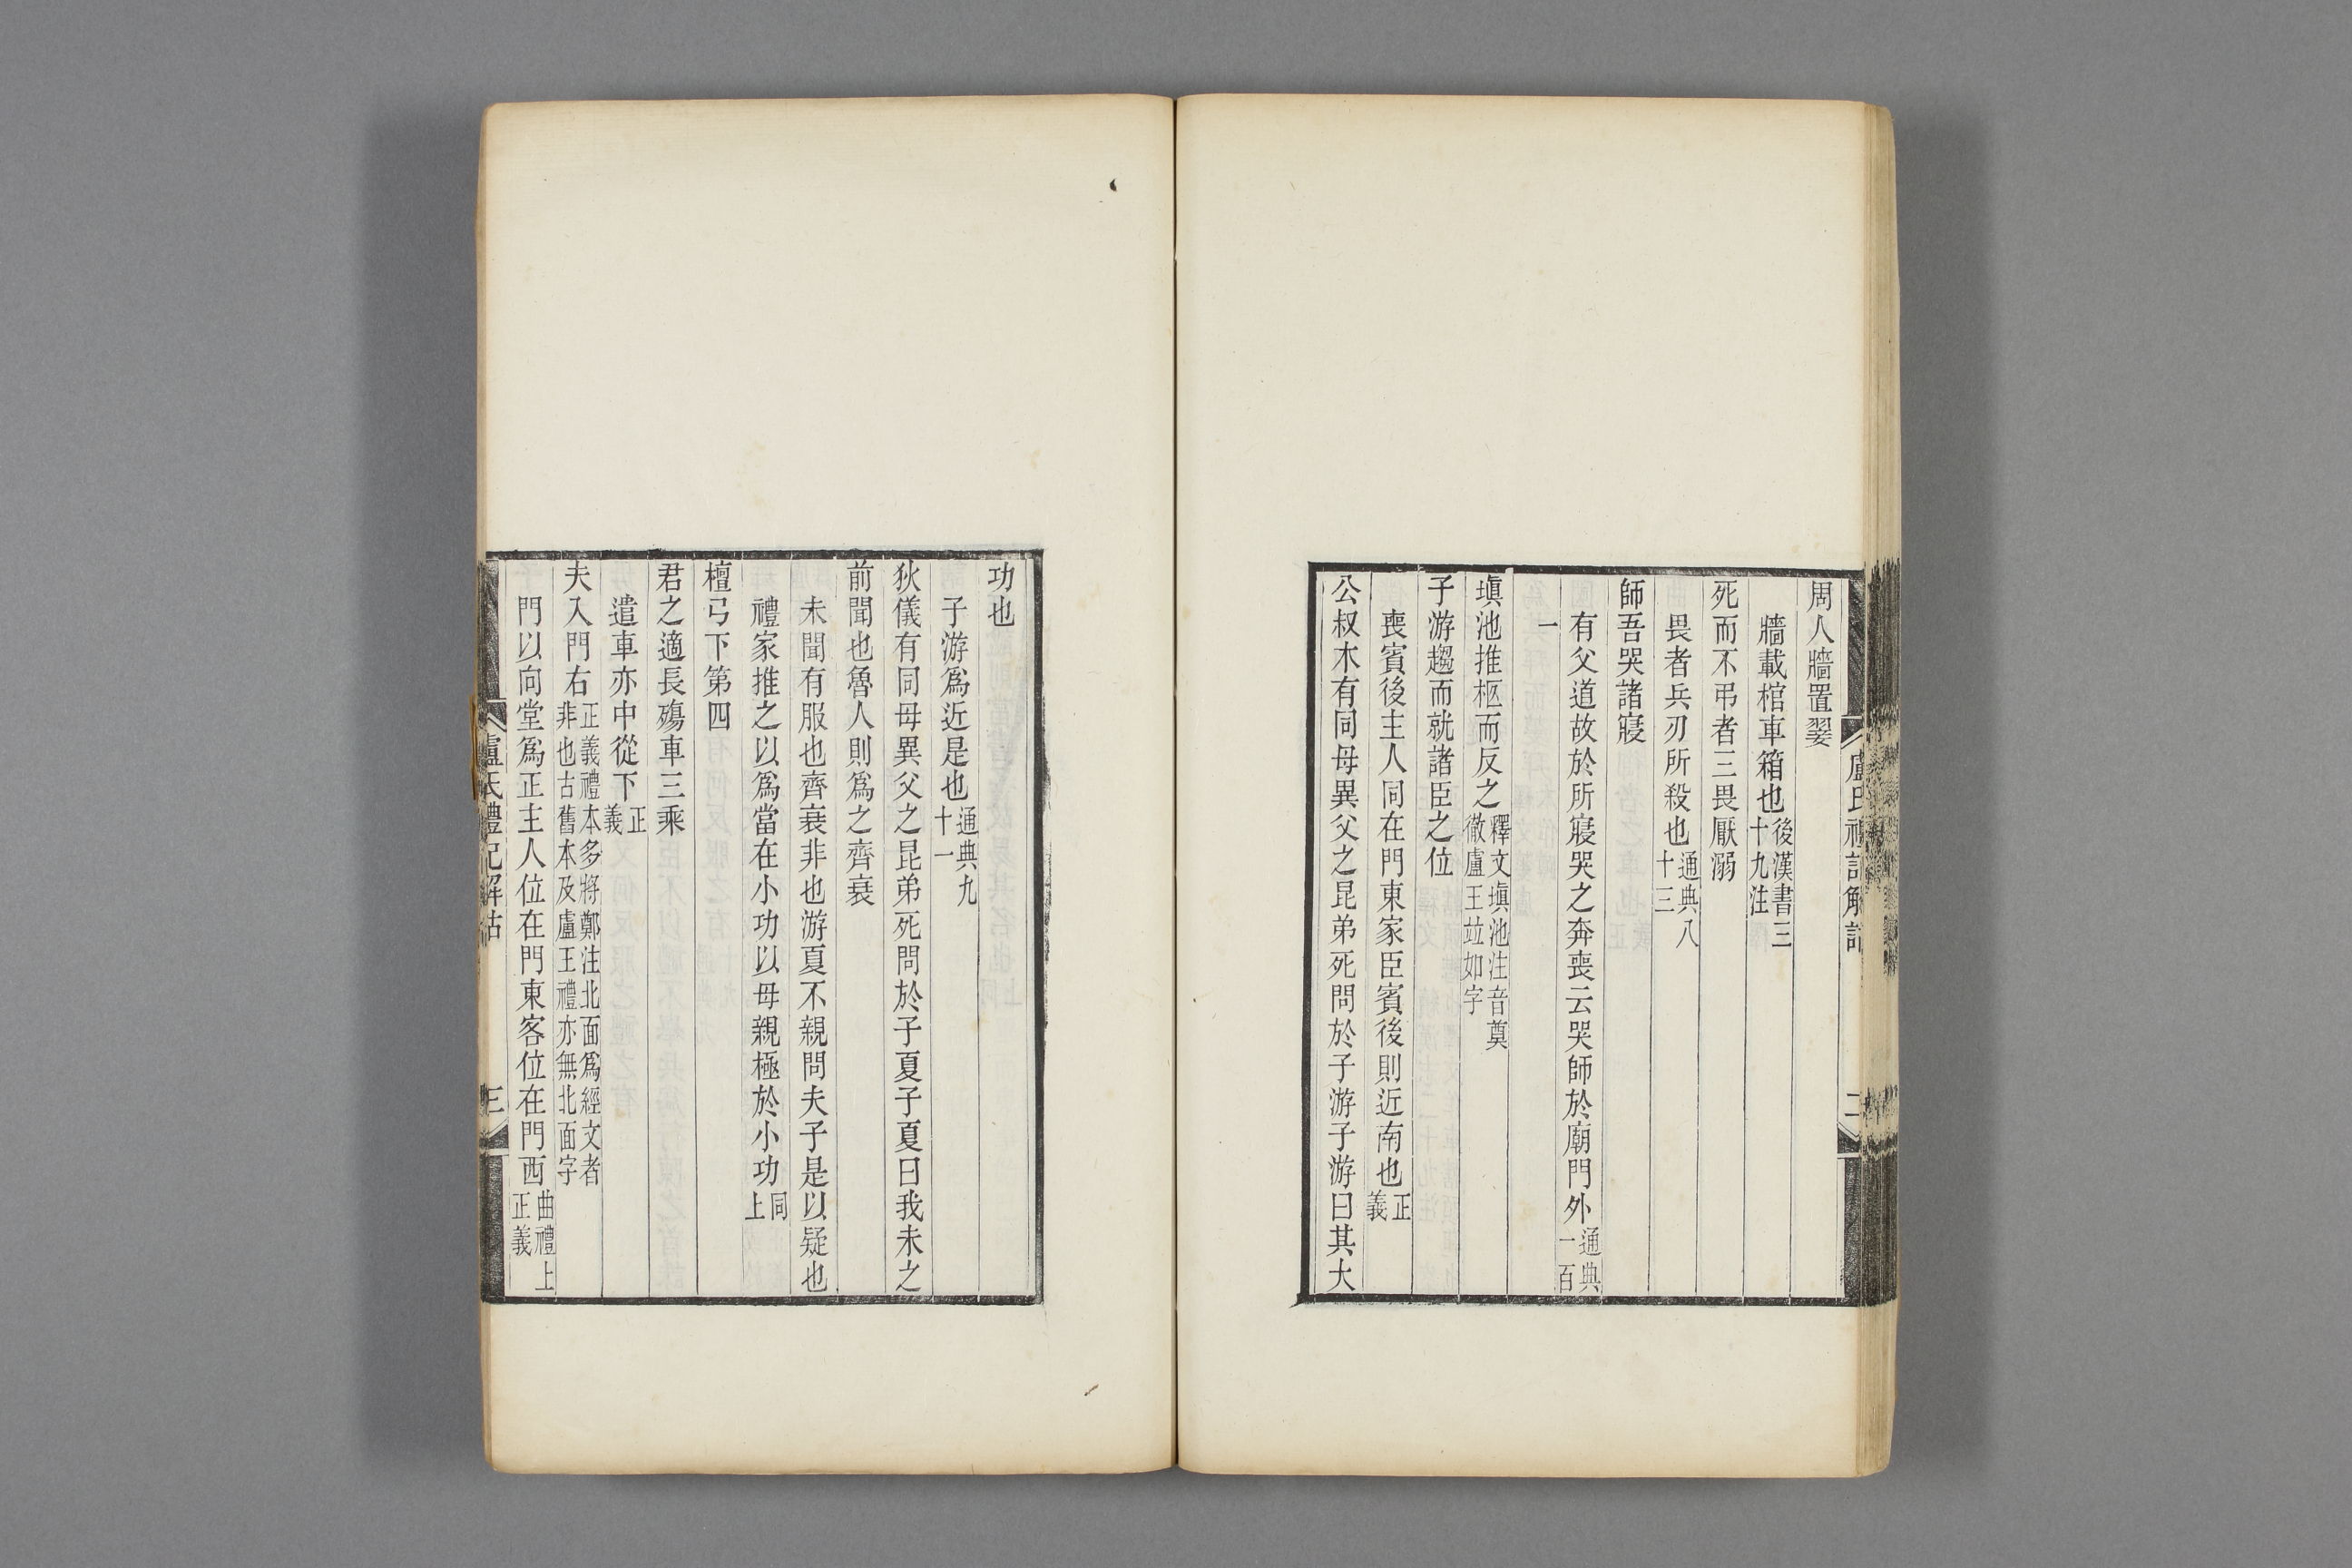 周人牆置翣
牆載棺車箱也後漢書三十九注
死而不弔者三畏厭溺
畏者兵刃所殺也通典八十三
師吾哭諸寢
有父道故於所寢哭之奔喪云哭師於廟門外通典一百
一
塡池推柩而反之釋文塡池注音奠徹盧王竝如字
子游趨而就諸臣之位
喪賓後主人同在門東家臣賓後則近南也正義
公叔木有同母異父之昆弟死問於子游子游曰其大
盧氏禮記解詁
二
功也
子游爲近是也通典九十一
狄儀有同母異父之昆弟死問於子夏子夏曰我未之
前聞也魯人則爲之齊衰
未聞有服也齊衰非也游夏不親問夫子是以疑也
禮家推之以爲當在小功以母親極於小功同上
檀弓下第四
君之適長殤車三乘
遣車亦中從下正義
夫入門右正義禮本多將鄭注北面爲經文者非也古舊本及盧王禮亦無北面字
門以向堂爲正主人位在門東客位在門西曲禮上正義
盧氏禮記解詁
三